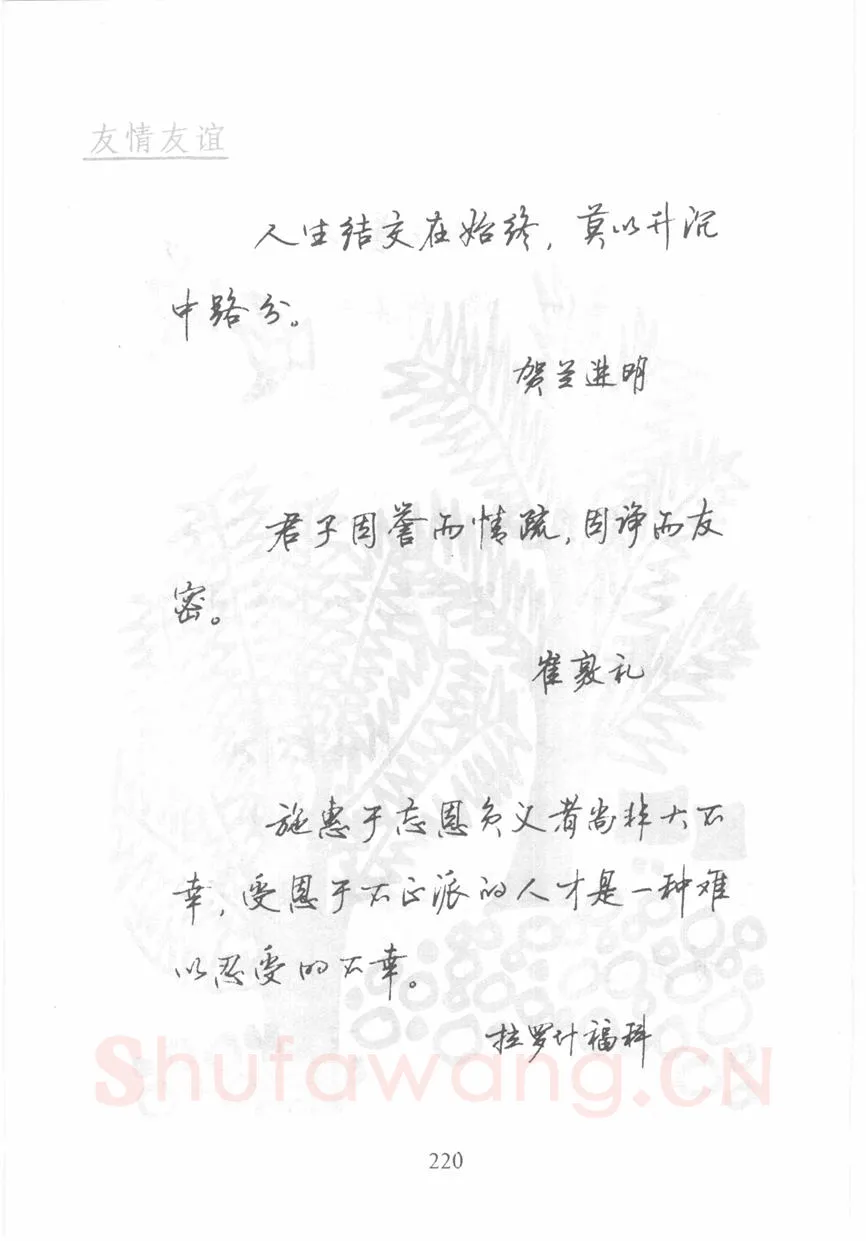 友情友谊
人生结交在始终，莫以升沉
中路分。
贺兰进明
君子因誉而情疏，因诤而友
密。
崔敦礼
施惠于忘恩负义者尚非大不
幸，受恩于不正派的人才是一种难
以忍受的不幸。
拉罗什福科
Shufawang.CN
220